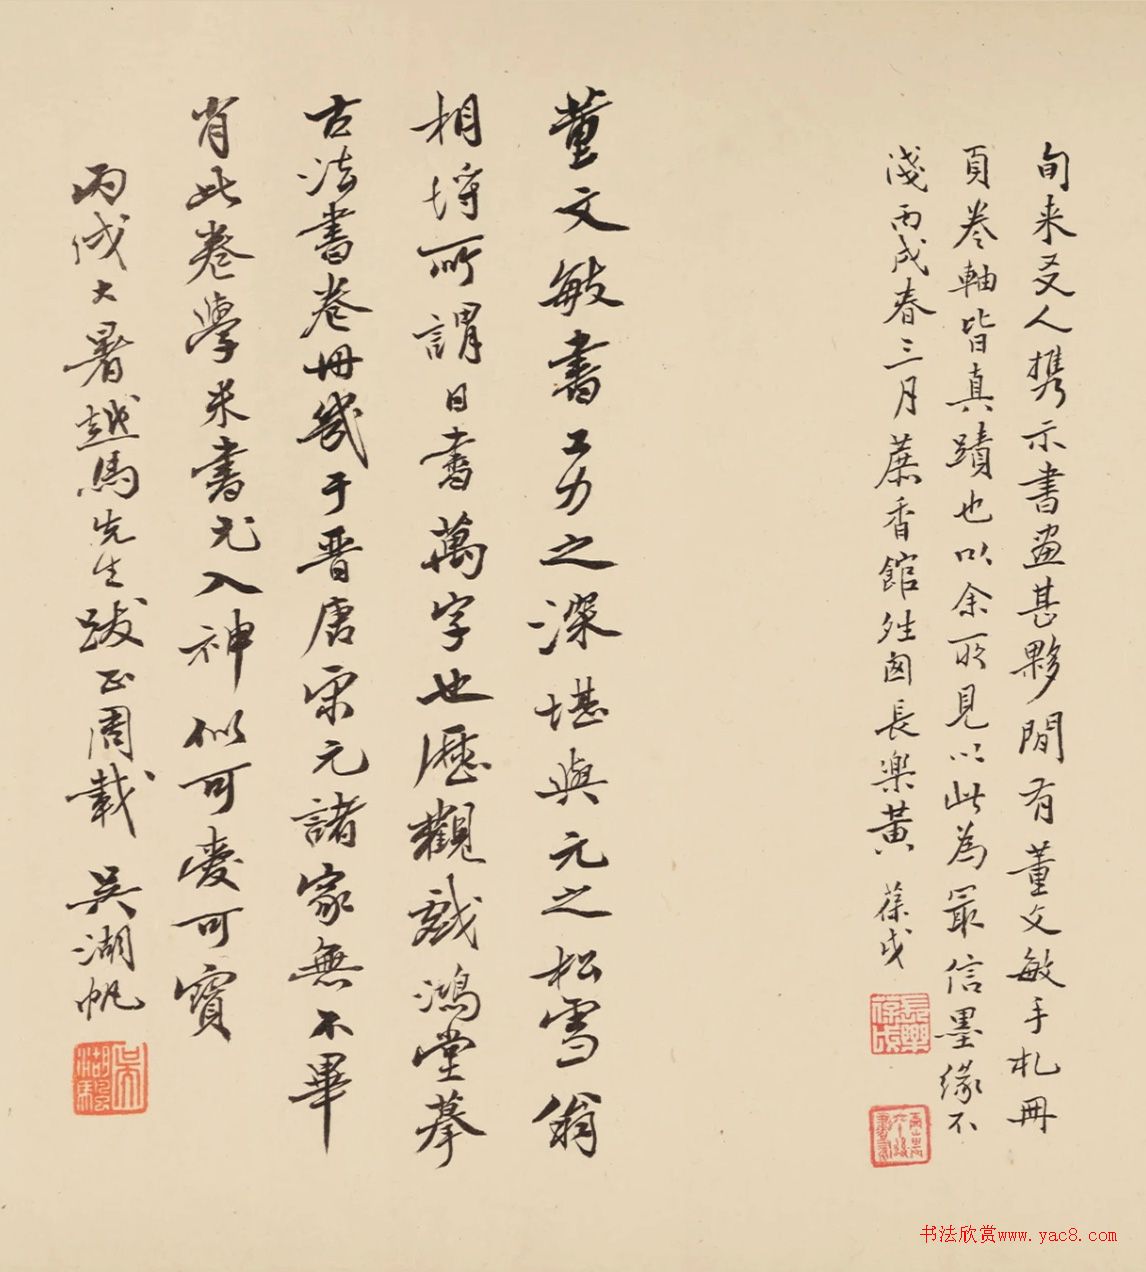 旬来友人携示書画甚夥間有董文敏手札冊
頁卷軸皆真蹟也以余所見以此為最信墨緣不
淺丙戌春三月蔗香館主長樂黃葆戉
董文敏書工力之深堪與元之松雪翁
相埒所謂日書萬字也歷觀戲鴻堂摹
古法書卷冊幾于晉唐宋元諸家無不畢
肖此卷學米書尤入神似可愛可寶
丙戌大暑越馬先生跋正周載 吳湖帆
書法欣赏www.yac8.com